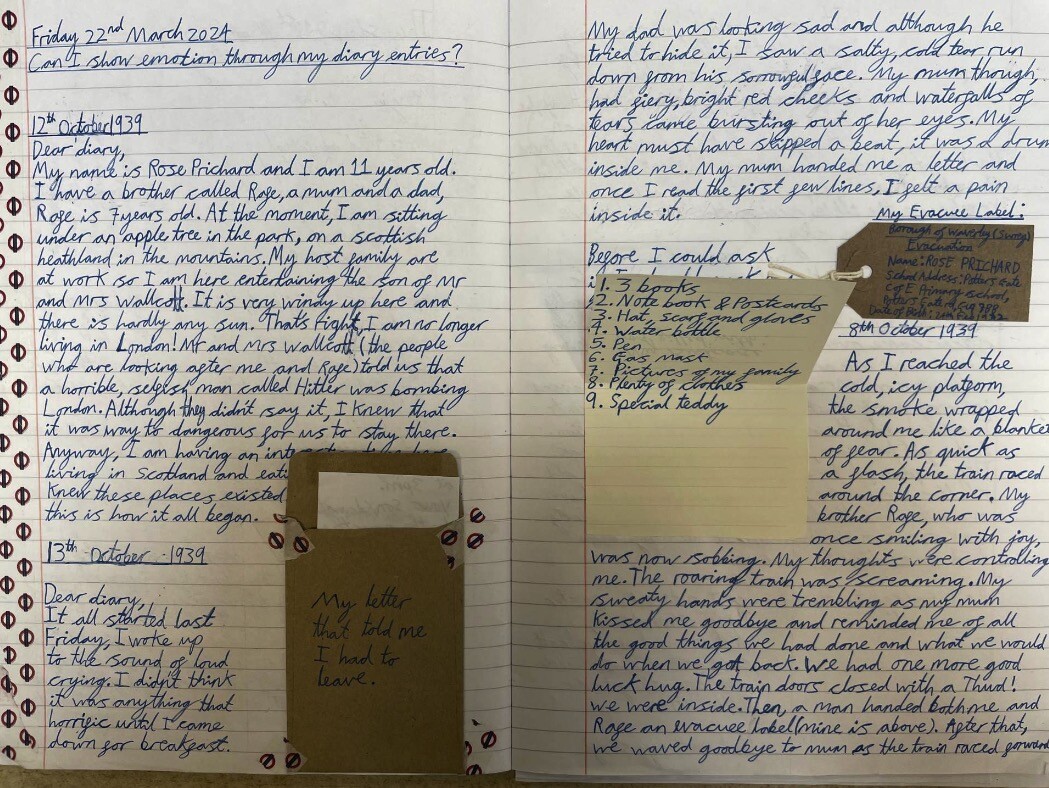 Friday 22nd March 2024
Can I show emotion through my diary entries?
12th October 1939
Dear diary,
My name is Rose Prichard and I am 11 years old.
I have a brother called Rafe, a mum and a dad,
Rafe is 7 years old. At the moment, I am sitting
under an apple tree in the park, on a scottish
heathland in the mountains. My host family are
at work so I am here entertaining the son of Mr
and Mrs Wallcott. It is very windy up here and
there is hardly any sun. Thats right, I am no longer
living in London! Mr and Mrs Wallcott (the people
who are looking after me and Rafe) told us that
a horrible, selfish, man called Hitler was bombing
London. Although they didn't say it, I knew that
it was way to dangerous for us to stay there.
Anyway, I am having an
living in Scotland and
knew these places existed
this is how it all began.
13th October 1939
Dear diary,
It all started last
Friday, I woke up
to the sound of loud
crying. I didn't think
it was anything that
horrific until I came
down for breakfast.
My letter
that told me
I had to
leave.
My dad was looking sad and although he
tried to hide it, I saw a salty, cold tear run
down from his sorrowful face. My mum though,
had fiery, bright red cheeks and waterfalls of
tears came bursting out of her eyes. My
heart must have skipped a beat, it was a drum
inside me. My mum handed me a letter and
once I read the first few lines, I felt a pain
inside it.
My Evacuee Label:
Borough of Waverly (Surrey)
Evacuation
Name: ROSE PRICHARD
School Address: Potters Gate
C of E Primary school,
Potters Gate,
Date of Birth:
Before I could ask
1. 3 books
2. Note book & Postcards
3. Hat, scarf and gloves
4. Water bottle
5. Pen
6. Gas mask
7. Pictures of my family
8. Plenty of clothes
9. Special teddy
8th October 1939
As I reached the
cold, icy platform,
the smoke wrapped
around me like a blanket
of fear. As quick as
a flash, the train raced
around the corner. My
brother Rafe, who was
once smiling with joy,
was now sobbing. My thoughts were controlling
me. The roaring train was screaming. My
sweaty hands were trembling as my mum
kissed me goodbye and reminded me of all
the good things we had done and what we would
do when we got back. We had one more good
luck hug. The train doors closed with a Thud!
we were inside. Then, a man handed both me and
Rafe an evacuee label (mine is above). After that,
we waved goodbye to mum as the train raced forward